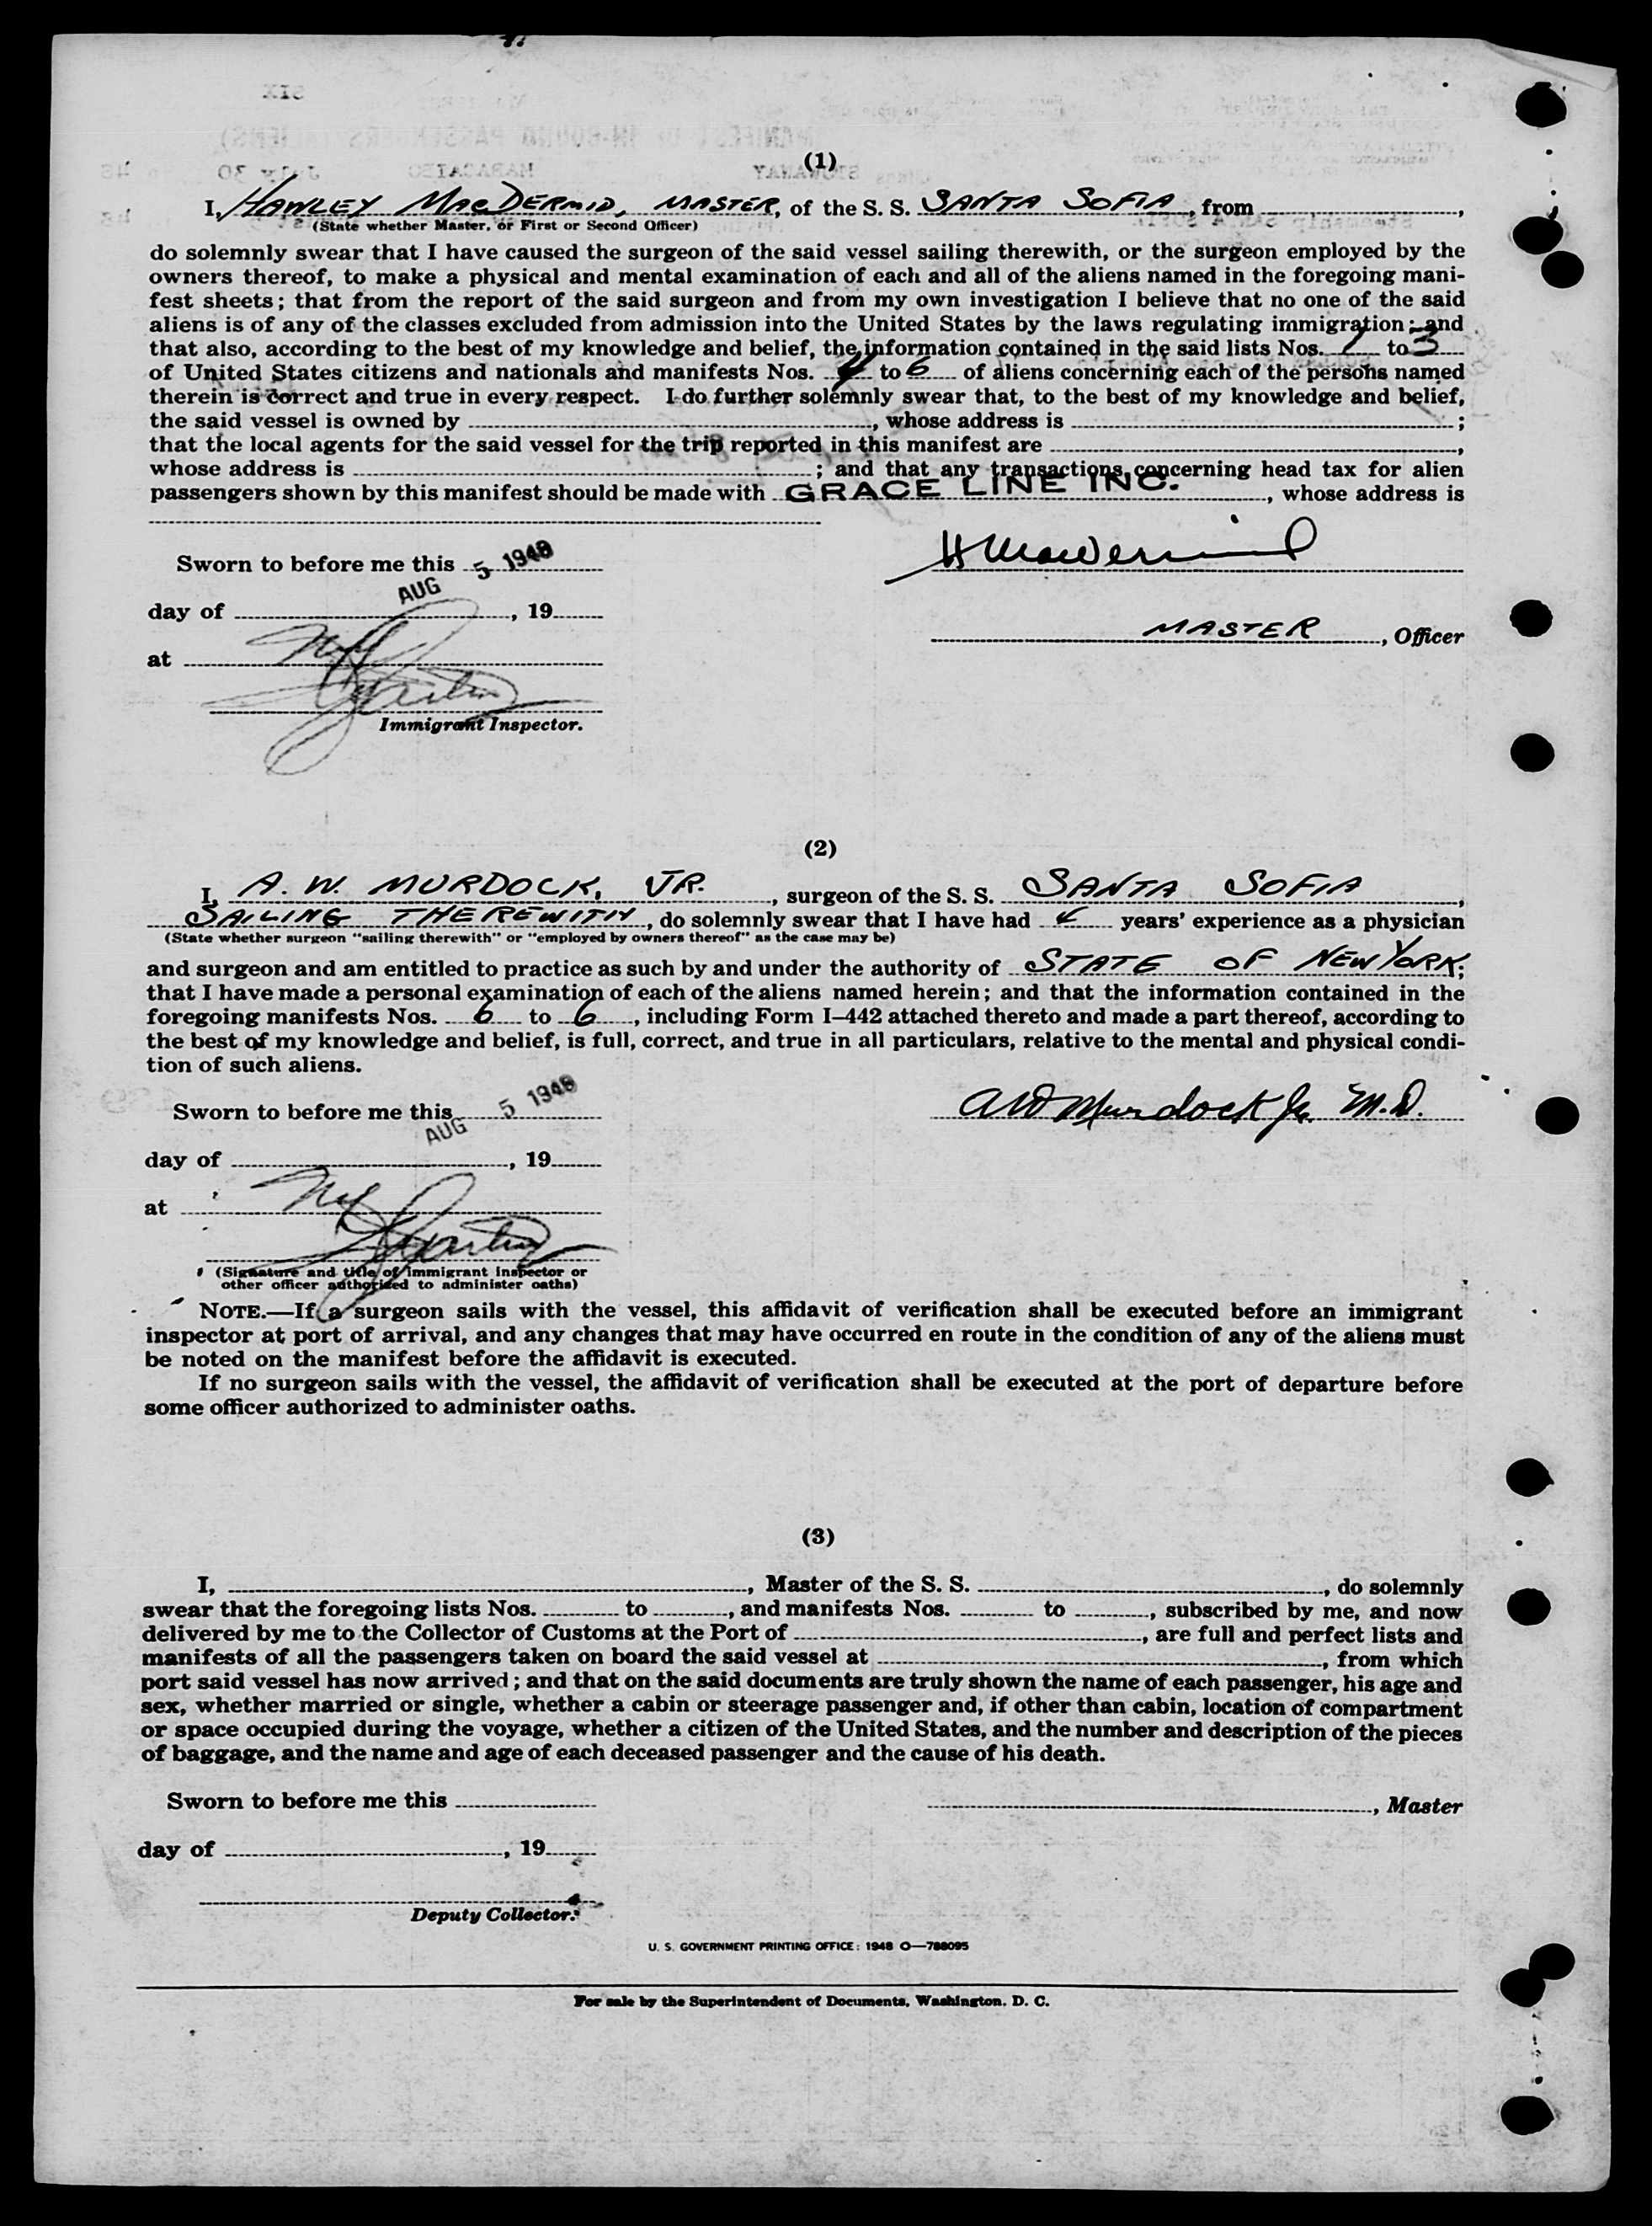 (1)
I, HAWLEY MACDERMID, MASTER, of the S. S. SANTA SOFIA, from
(State whether Master, or First or Second Officer)
do solemnly swear that I have caused the surgeon of the said vessel sailing therewith, or the surgeon employed by the
owners thereof, to make a physical and mental examination of each and all of the aliens named in the foregoing mani-
fest sheets; that from the report of the said surgeon and from my own investigation I believe that no one of the said
aliens is of any of the classes excluded from admission into the United States by the laws regulating immigration; and
that also, according to the best of my knowledge and belief, the information contained in the said lists Nos. 1 to 3
of United States citizens and nationals and manifests Nos. 4 to 6 of aliens concerning each of the persons named
therein is correct and true in every respect. I do further solemnly swear that, to the best of my knowledge and belief,
the said vessel is owned by , whose address is ;
that the local agents for the said vessel for the trip reported in this manifest are ,
whose address is ; and that any transactions concerning head tax for alien
passengers shown by this manifest should be made with GRACE LINE INC. , whose address is
Sworn to before me this AUG 5 1948
H MacDermid
day of , 19
MASTER , Officer
at
Immigrant Inspector.
(2)
I, A. W. MURDOCK, JR. , surgeon of the S. S. SANTA SOFIA ,
SAILING THEREWITH , do solemnly swear that I have had 4 years' experience as a physician
(State whether surgeon "sailing therewith" or "employed by owners thereof" as the case may be)
and surgeon and am entitled to practice as such by and under the authority of STATE OF NEW YORK;
that I have made a personal examination of each of the aliens named herein; and that the information contained in the
foregoing manifests Nos. 6 to 6 , including Form I-442 attached thereto and made a part thereof, according to
the best of my knowledge and belief, is full, correct, and true in all particulars, relative to the mental and physical condi-
tion of such aliens.
Sworn to before me this AUG 5 1948
AW Murdock Jr. M.D.
day of , 19
at
(Signature and title of immigrant inspector or
other officer authorized to administer oaths)
NOTE.—If a surgeon sails with the vessel, this affidavit of verification shall be executed before an immigrant
inspector at port of arrival, and any changes that may have occurred en route in the condition of any of the aliens must
be noted on the manifest before the affidavit is executed.
If no surgeon sails with the vessel, the affidavit of verification shall be executed at the port of departure before
some officer authorized to administer oaths.
(3)
I, , Master of the S. S. , do solemnly
swear that the foregoing lists Nos. to , and manifests Nos. to , subscribed by me, and now
delivered by me to the Collector of Customs at the Port of , are full and perfect lists and
manifests of all the passengers taken on board the said vessel at , from which
port said vessel has now arrived; and that on the said documents are truly shown the name of each passenger, his age and
sex, whether married or single, whether a cabin or steerage passenger and, if other than cabin, location of compartment
or space occupied during the voyage, whether a citizen of the United States, and the number and description of the pieces
of baggage, and the name and age of each deceased passenger and the cause of his death.
Sworn to before me this
, Master
day of , 19
Deputy Collector.
U. S. GOVERNMENT PRINTING OFFICE: 1948 O—788095
For sale by the Superintendent of Documents, Washington, D. C.